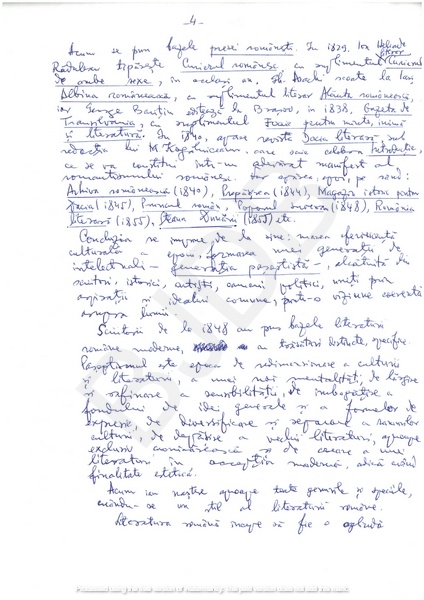 -4-
Acum se pun bazele presei românești. În 1829, Ion Heliade
Rădulescu tipărește Curierul românesc cu suplimentul Curierul
de ambe sexe, în același an, Gh. Asachi scoate la Iași
Albina românească, cu suplimentul literar Alăuta românească,
iar George Barițiu editează la Brașov, în 1838, Gazeta de
Transilvania, cu suplimentul Foaie pentru minte, inimă
și literatură. În 1840, apare revista Dacia literară, sub
redacția lui M. Kogălniceanu, care prin celebra Introducție,
ce se va constitui într-un adevărat manifest al
romantismului românesc. Vor apărea, apoi, pe rând:
Arhiva românească (1840), Propășirea (1844), Magazin istoric pentru
Dacia (1845), Pruncul român, Poporul suveran (1848), România
literară (1855), Steaua Dunării (1855) etc.
Concluzia se impune de la sine: marea efervescență
culturală a epocii, formarea unei generații de
intelectuali – generația pașoptistă –, alcătuită din
scriitori, istorici, artiști, oameni politici, uniți prin
aspirații și idealuri comune, printr-o viziune coerentă
asupra lumii
Scriitorii de la 1848 au pus bazele literaturii
române moderne, a trăsături distincte, specifice.
Pașoptismul este epoca de redimensionare a culturii
și literaturii, a unei noi mentalități, de
și rafinare a sensibilității, de îmbogățire a
fondului de idei generale și a formelor de
expresie, de diversificare și separare a ramurilor
culturii, de depășire a vechii literaturi, aproape
exclusiv și de creare a unei
literaturi în accepția modernă, adică având
finalitate estetică.
Acum iau naștere aproape toate genurile și speciile,
creându-se un stil al literaturii române.
Literatura română începe să fie o oglindă